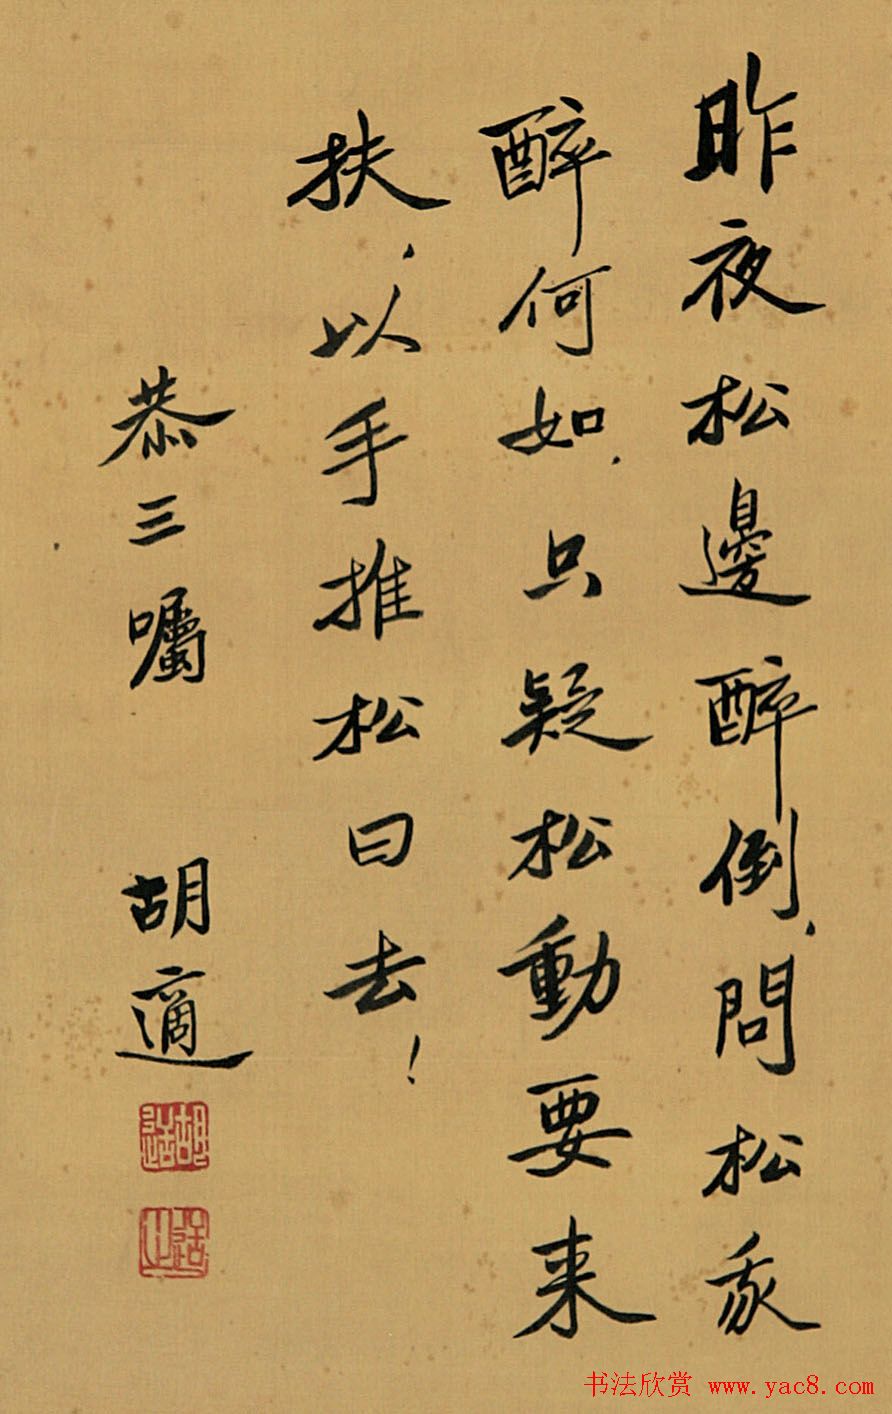 昨夜松邊醉倒、問松我
醉何如、只疑松動要来
扶、以手推松曰去！
恭三囑 胡適
胡适
适之
书法欣赏 www.yac8.com